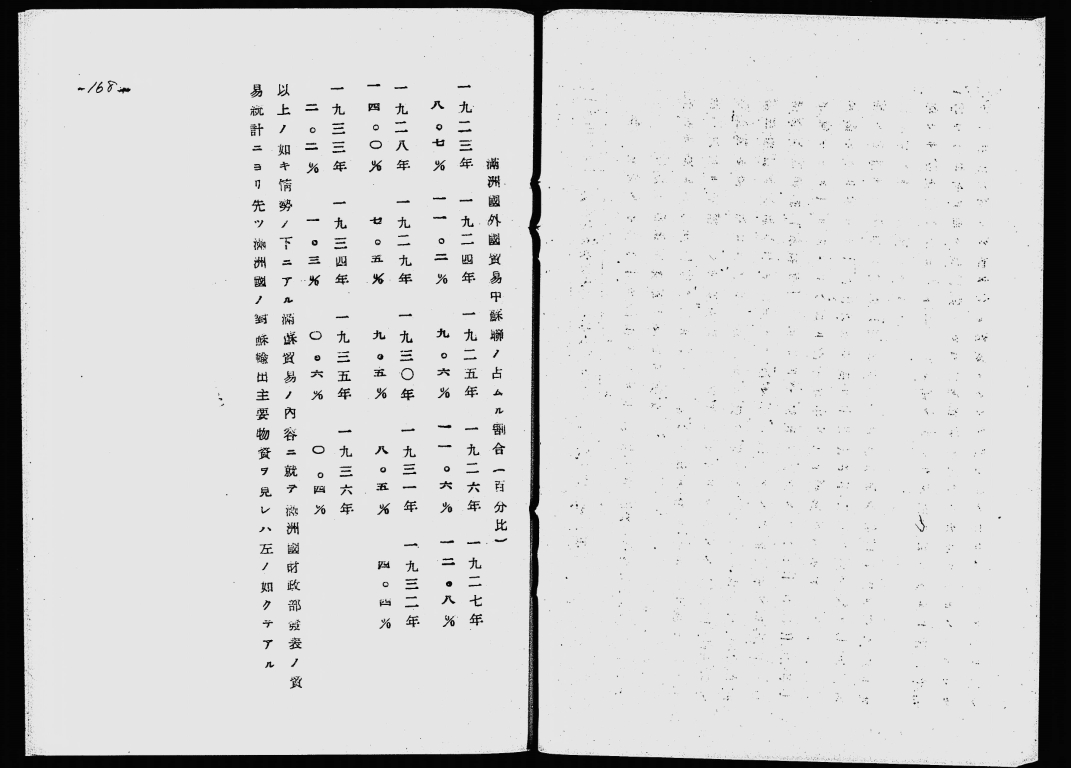 滿洲國外國貿易中蘇聯ノ占ムル割合(百分比)
一九二三年 一九二四年 一九二五年 一九二六年 一九二七年
八。七% 一一。二% 九。六% 一一。六% 一二。八%
一九二八年 一九二九年 一九三〇年 一九三一年 一九三二年
一四。〇% 七。五% 九。五% 八。五% 四。四%
一九三三年 一九三四年 一九三五年 一九三六年
二。二% 一。三% 〇。六% 〇。四%
以上ノ如キ情勢ノ下ニアル滿蘇貿易ノ內容ニ就テ滿洲國財政部發表ノ貿
易統計ニヨリ先ツ滿洲國ノ對蘇輸出主要物資ヲ見レハ左ノ如クテアル
-168-